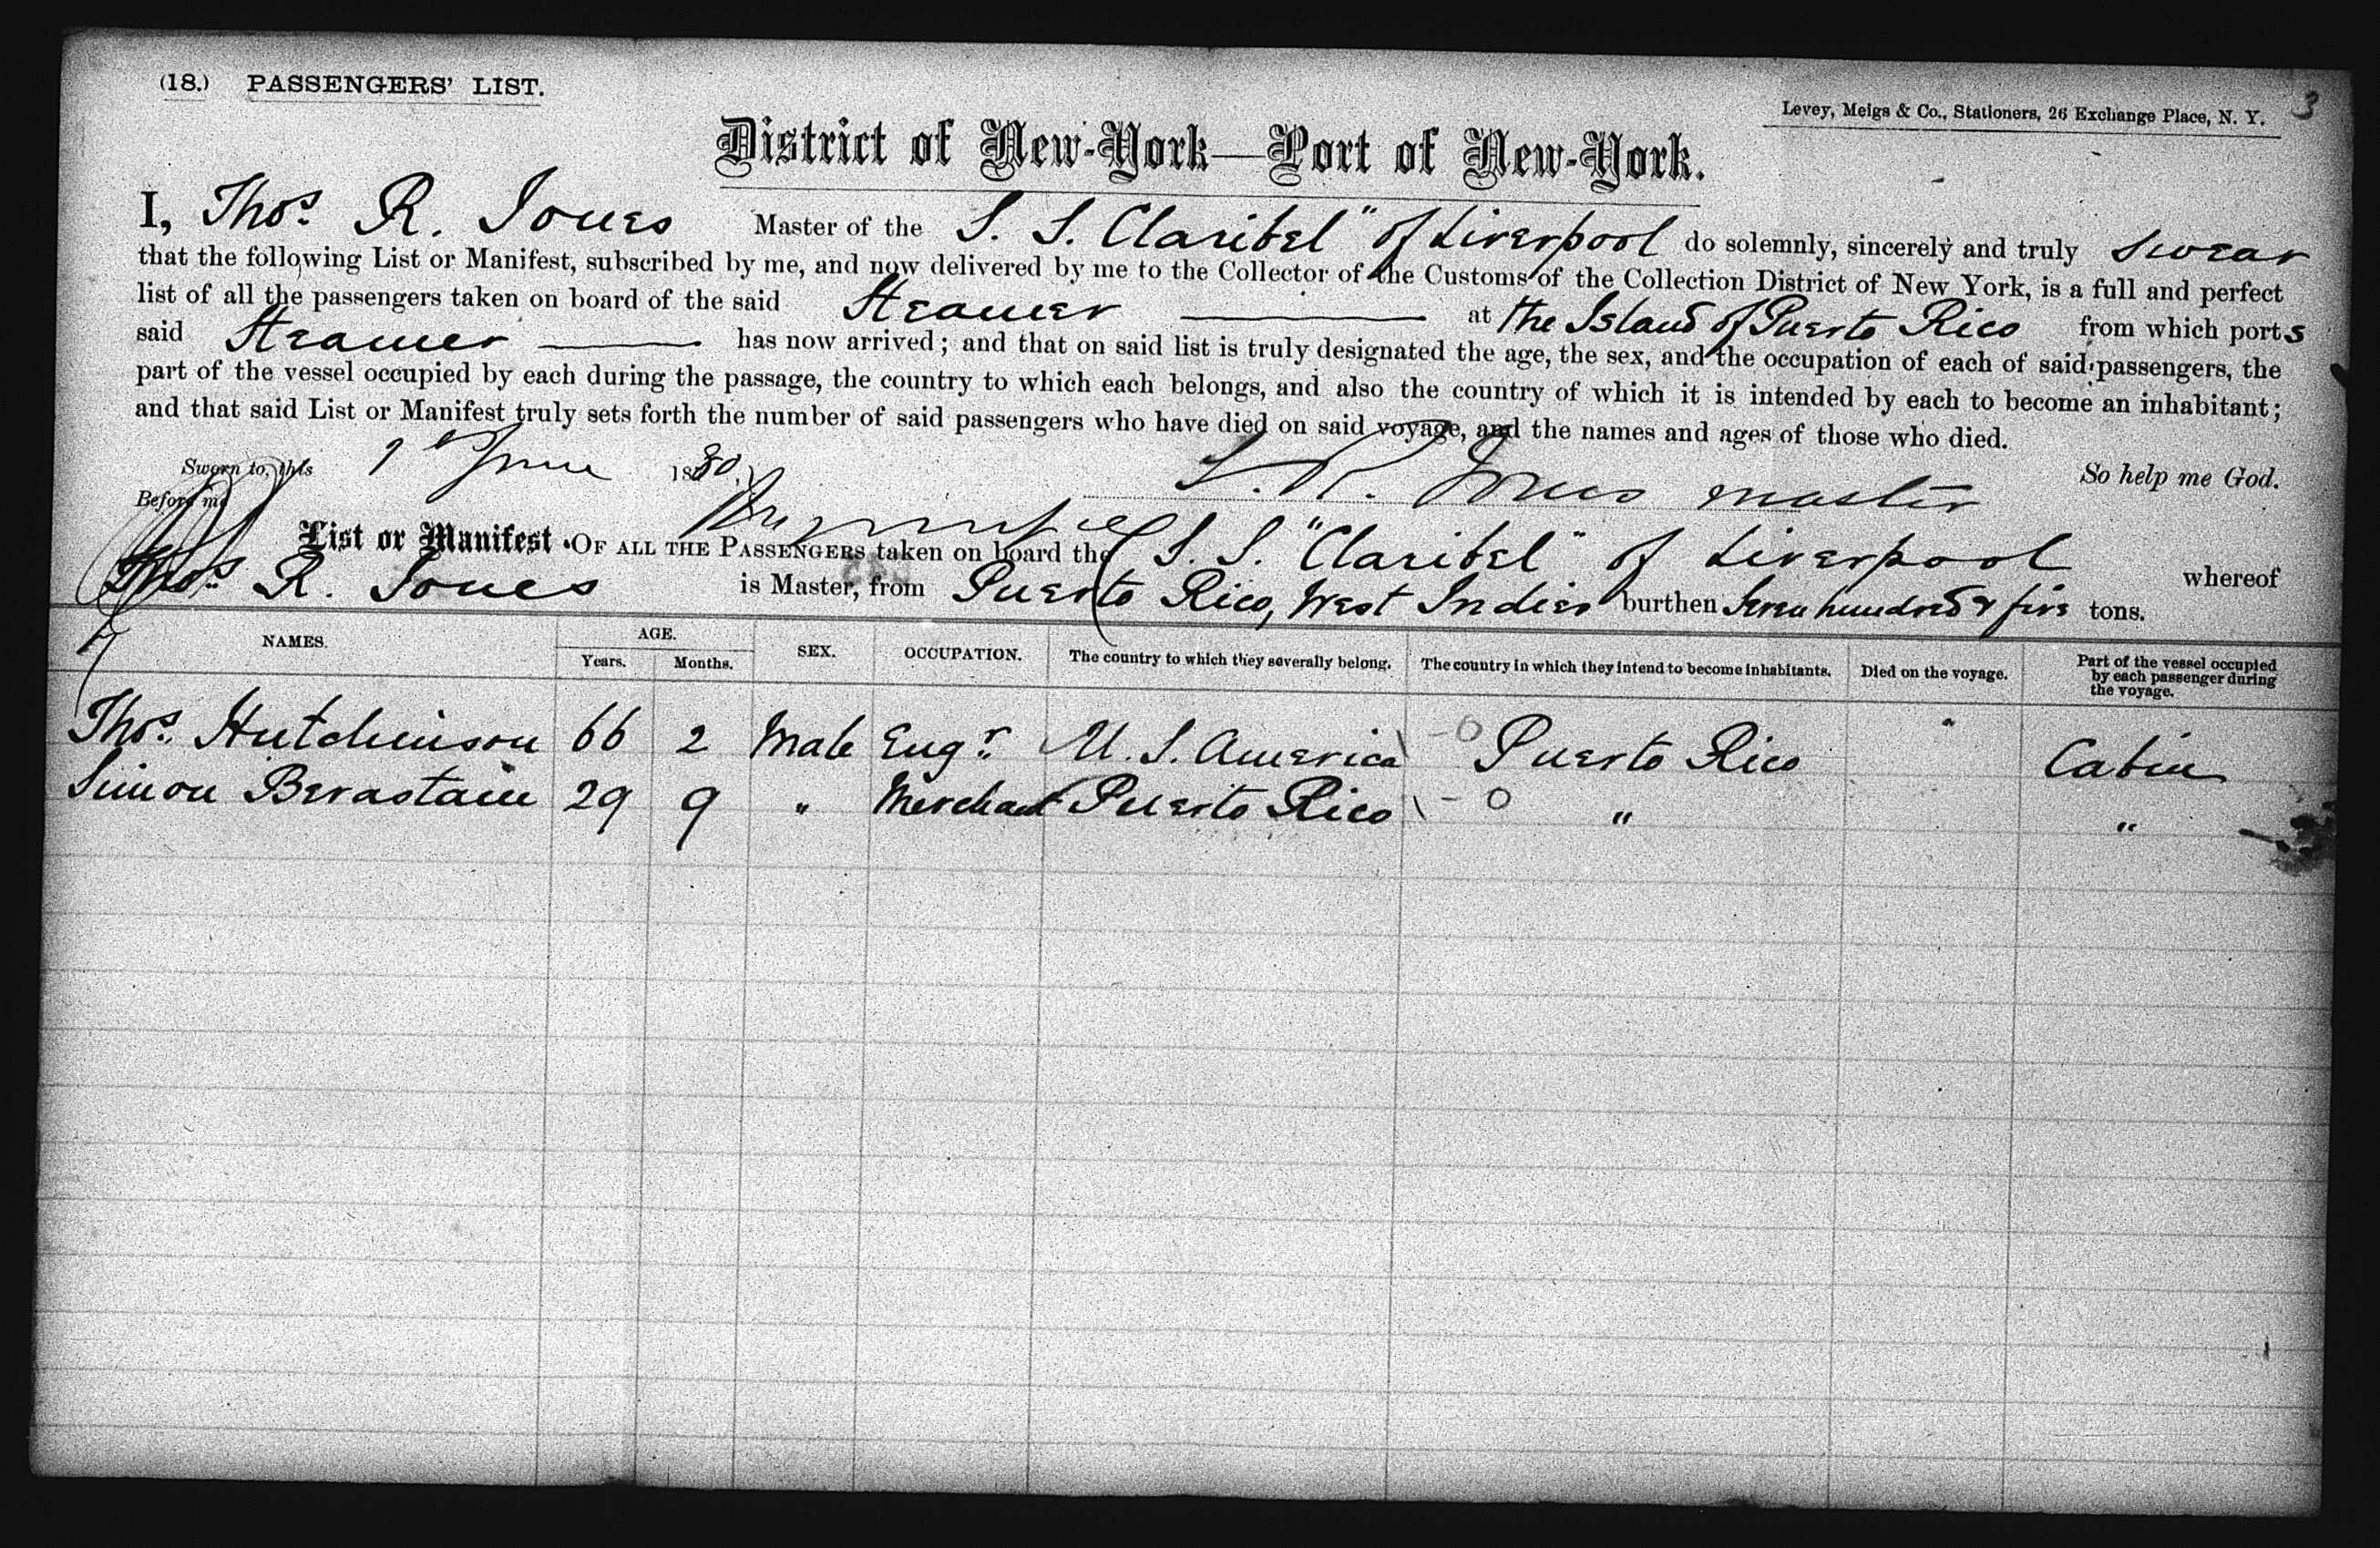 (18.) PASSENGERS' LIST.
Levey, Meigs & Co., Stationers, 26 Exchange Place, N. Y. 3
District of New-York—Port of New-York.
I, Thos. R. Jones Master of the S. S. Claribel" of Liverpool do solemnly, sincerely and truly swear
that the following List or Manifest, subscribed by me, and now delivered by me to the Collector of the Customs of the Collection District of New York, is a full and perfect
list of all the passengers taken on board of the said Steamer at the Island of Puerto Rico from which ports
said Steamer has now arrived; and that on said list is truly designated the age, the sex, and the occupation of each of said passengers, the
part of the vessel occupied by each during the passage, the country to which each belongs, and also the country of which it is intended by each to become an inhabitant;
and that said List or Manifest truly sets forth the number of said passengers who have died on said voyage, and the names and ages of those who died.
Sworn to, this 1st June 1880. So help me God.
Before me T. R. Jones master
List or Manifest OF ALL THE PASSENGERS taken on board the S. S. "Claribel" of Liverpool whereof
Thos. R. Jones is Master, from Puerto Rico, West Indies burthen Seven hundred & five tons.
NAMES. AGE. Years. Months. SEX. OCCUPATION. The country to which they severally belong. The country in which they intend to become inhabitants. Died on the voyage. Part of the vessel occupied by each passenger during the voyage.
Thos. Hutchinson 66 2 Male Engr. U. S. America - 0 Puerto Rico " Cabin
Simon Berastain 29 9 " Merchant Puerto Rico - 0 " "